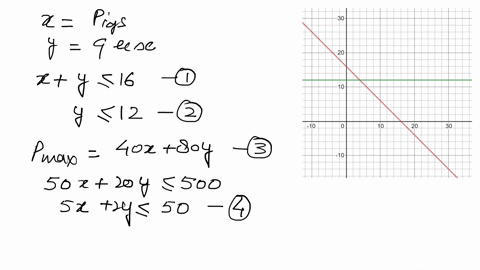 x = Pigs
y = Geese
x + y ≤ 16 — ①
y ≤ 12 — ②
Pmax = 40x + 80y — ③
50x + 20y ≤ 500
5x + 2y ≤ 50 — ④
30
20
10
-10
0
10
20
30
-10